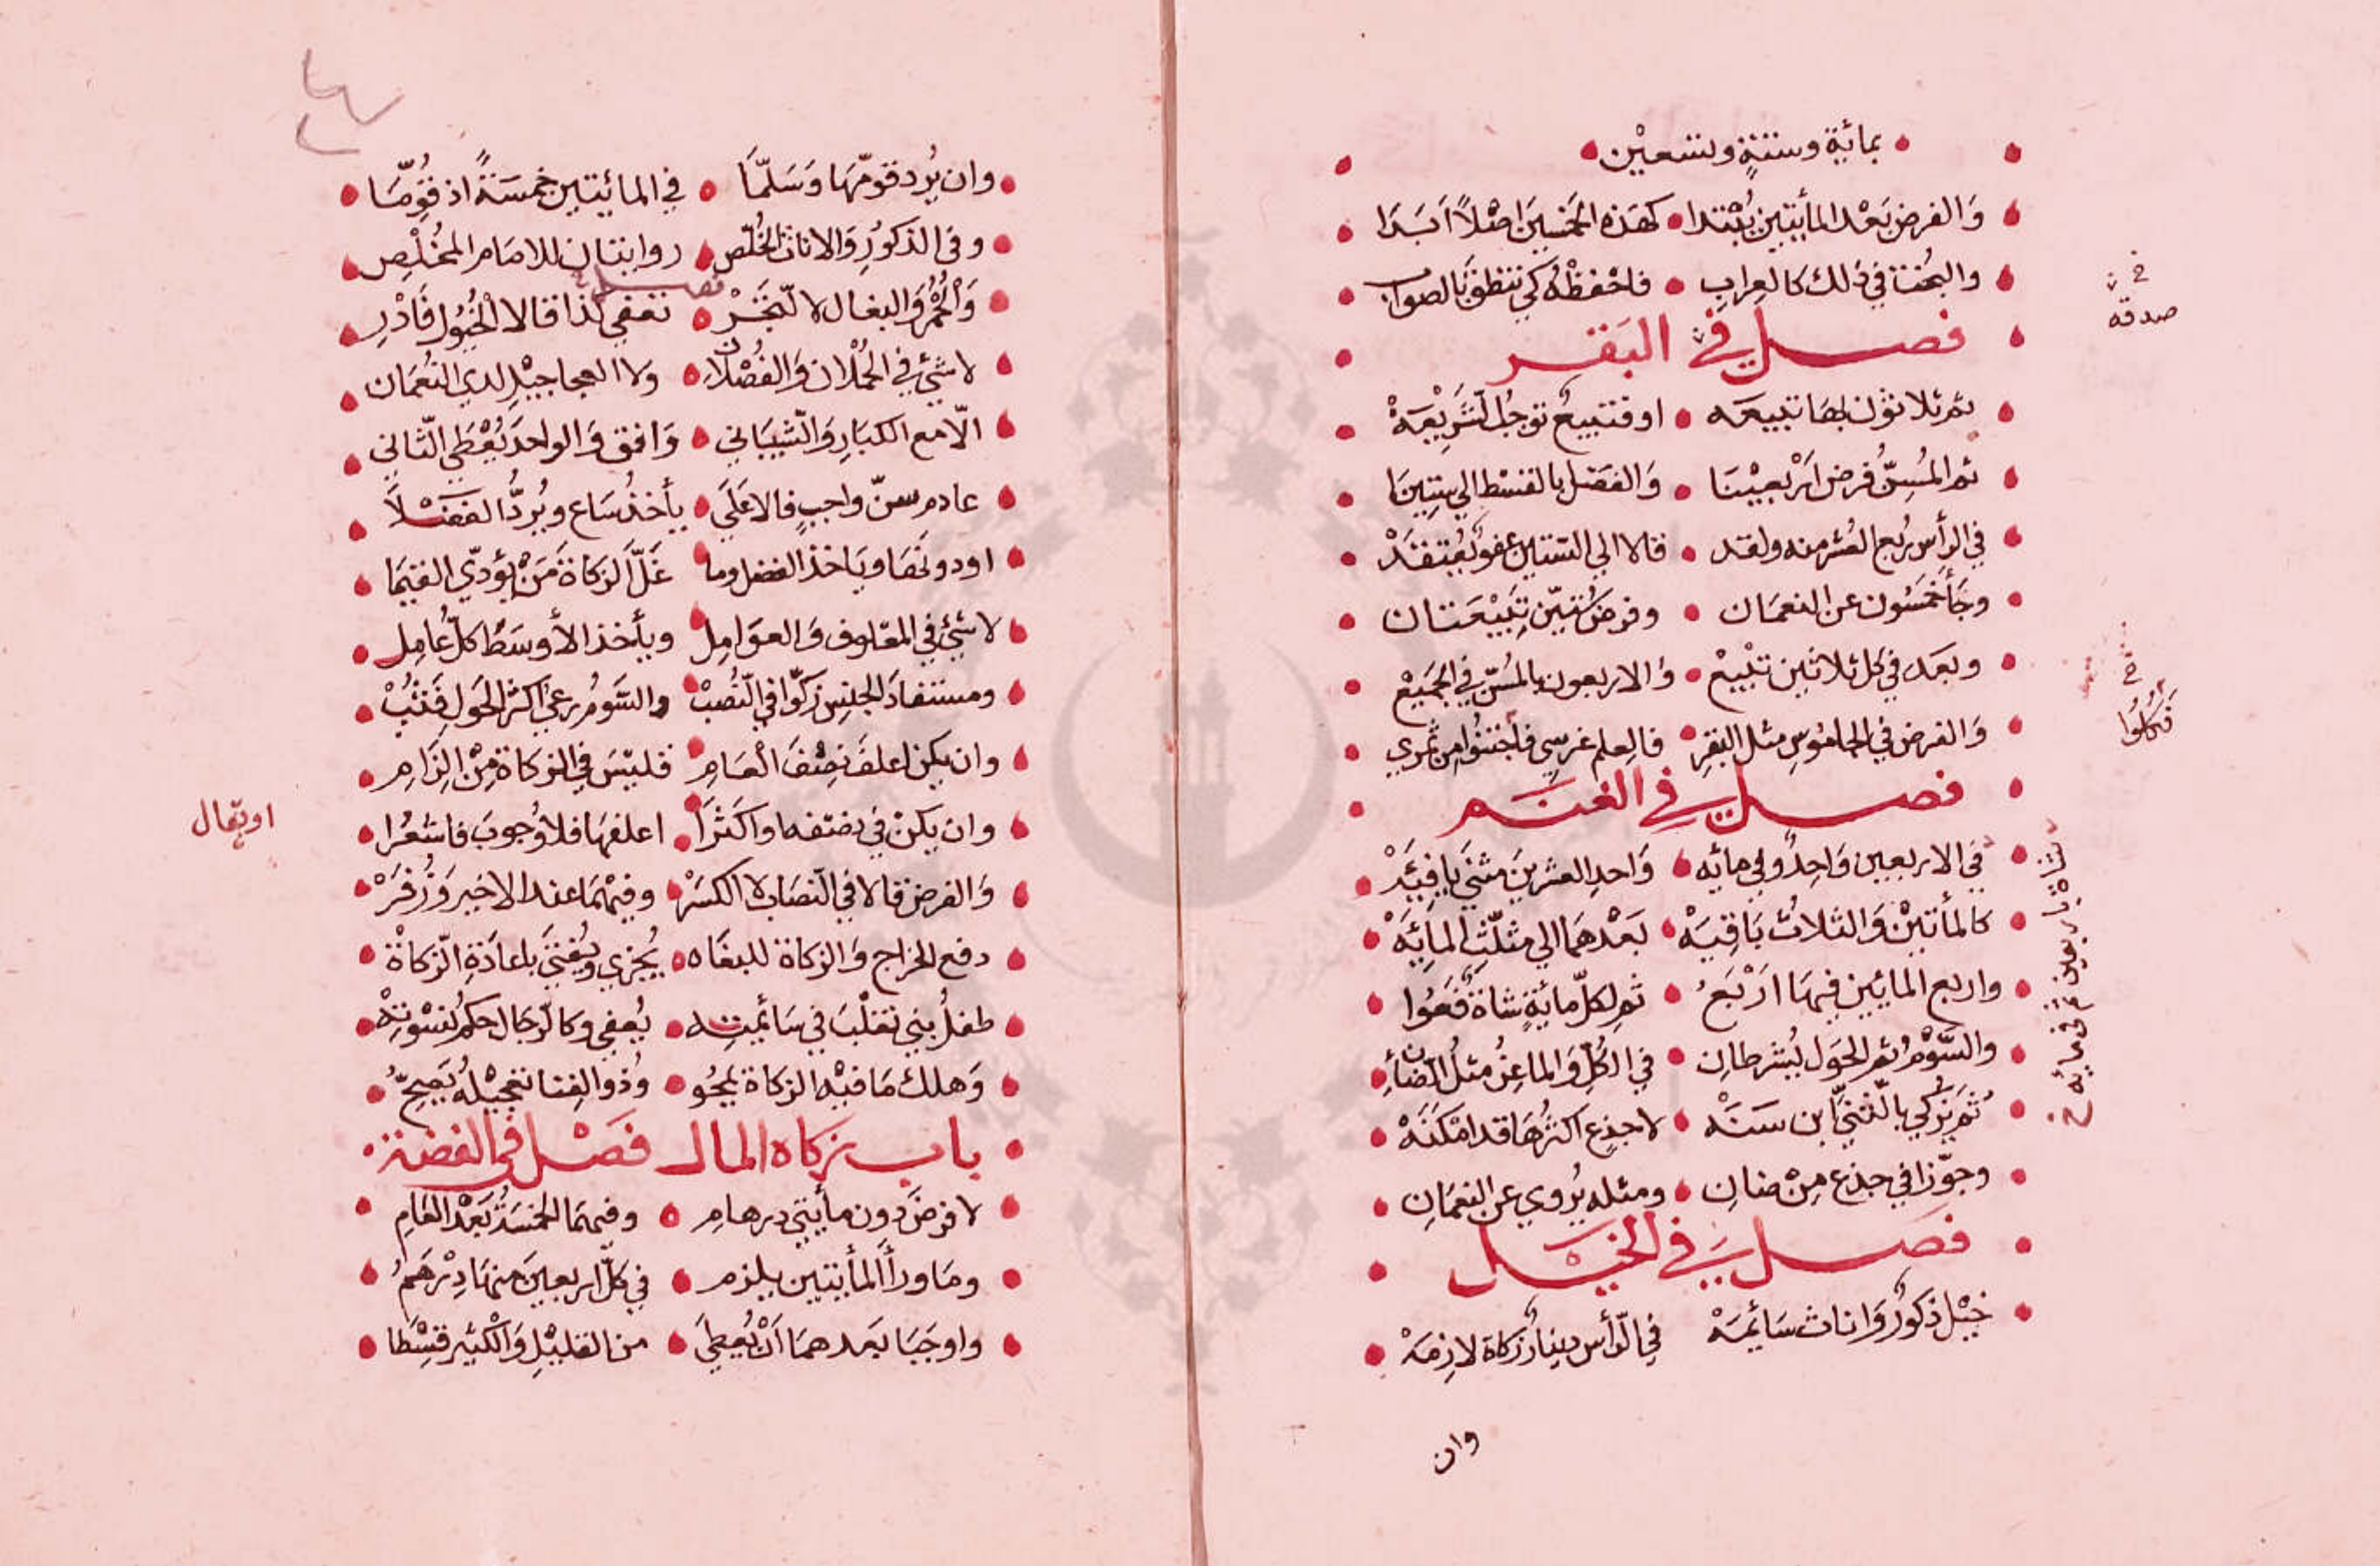 بمائيةٍ وستةٍ وتسعيْن
وَالفرض بَعْد المأيتين يُبْتدا كهَذه الخمسينَ اصْلاً اَبَدَا
والبُخت في ذلك كالعِرابِ فاحْفظْهُ كَي تنطقَ بالصواب
صدقه
فصل في البَقر
ثم ثلاثون لها تبيعَه او فتبيعٌ توجبُ الشَّرِيْعَةْ
ثم المُسِنُّ فرض اَرْبعيْنَا وَالفَضل بالقسْط الي ستِينَا
في الرأس ربع العُشر منه ولقد قالا الي الستين عفوٌ يُعْتقَدْ
وجَأَ خمسُون عن النعمَان وفرض ستيّن تبَيْعَتان
وبعَد في كل ثلاثين تبْيعْ وَالاربعون بالمُسِنّ في الجَميْعْ
وَالفرض في الجاموُسِ مثل البقرِ فالعِلم غرسِي فاجْتنُوا مِن ثمري
فكُلُوا
فصل في الغنَم
في الاربعين وَاحِدٌ وفي مائه وَاحدِ العشرينَ مثنَي يافِئَهْ
كالمأتيْن وَالثلاثُ بَاقيَهْ بَعْدهمَا الي مثلّثِ المِائِهْ
واربع المايين فيهَا ارَْبَعُ ثم لكلّ مائةٍ شاةٌ فَعُوا
والسَّوْمُ ثم الحَول يُشرطانِ في الكُلِّ وَالماعِزُ مثلُ الضّأنِ
ثمَ يزُكي بالثّنيِّ ابن سَنَهْ لا جذعٍ اكثرُهَا قد امْكنَهْ
وجوّزا في جذع مِنْ ضانِ ومثله يُروي عن النعمَانِ
فصل في الخيَل
خيْل ذكورٌ وَاناث سَائمَهْ في الرّأس دينارٌ زكاة لازمَهْ
وان
وان يُرد قومّهَا وَسَلّمَا في المائيتين خمسَةً اذ قوِّمَا
وفي الذكوُرِ وَالاناث الخُلّصِ روايتان للامَام المخُلْصِ
فصل
وَالحُمْرُ وَالبغال لا للّتجَرْ تعفي كذا قالا الخيُول فَادْرِ
لا شيَّ في الحُمْلان وَالفُصْلانِ وَلا العجاجيْلِ لدي النُعمَان
الاّ مع الكبَارِ وَالشّيبَاني وَافق وَالواحدَ يُعْطي الثّاني
عادم سنّ واجبٍ فالاعَلَي يأخذُ سَاع ويُردُّ الفَضْلاَ
او دونَهَا ويَاخذ الفضل وما غَلَّ الزكاةَ مَنْ يؤدّي القيَما
لا شيَّ في المعَلوف وَالعوَامِل ويأخذ الأوسَط كلّ عَامِل
ومستفادَ الجنسِ زكّوا في النُّصُبْ والسَّومُ رعي اكثرَ الحَولِ
وان يكن اعلفَ نصْفَ العَامِ فليسَ في الزكاة مِنْ اِلزَامِ
وان يكنْ في نصفه او اكثرَا اعلفهَا فلا وُجوبَ فاشعُرا
او يقال
وَالفرض قالا في النّصَاب لا الكسَرْ وفيْهمَا عند الاخير وَزُفَرْ
دفع الخراج وَالزكاة للبغَاه يُجزي ويُفْتيَ باعادَةِ الزّكاةْ
طفلُ بني تغلْبَ في سَائمتِه يُعفي وكالرّجَال حكم نسْوتِهْ
وَهلك مَا فيْه الزكاة يمحُو وَذو النِصَاب تعجيْلهُ يَصِحّ
باب زكاه المال فصَل في الفضة
لا فرضَ دون مأيتي درهامِ وفيهمَا الخمسَةُ بَعْد العَامِ
ومَا ورأَ المأيتين يلزم في كلّ اربعينَ منهَا دِرْهَمُ
واوجَبَا بَعدهمَا اَنْ يُعطيَ من القليْلِ وَالكثير قسْطَا